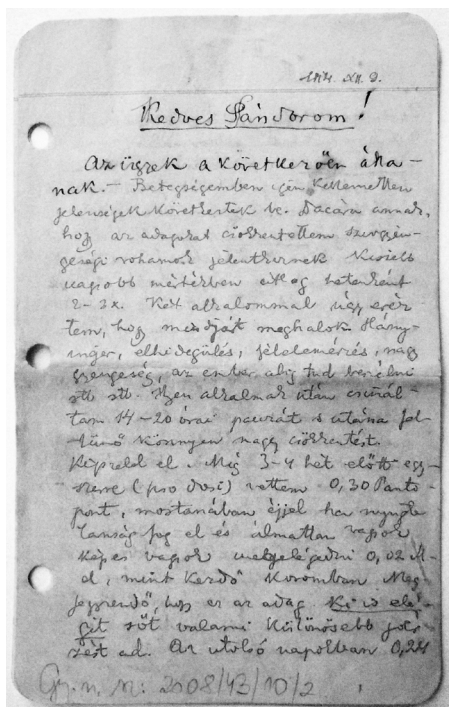 Kedves Sándorom!
Az ügyek a következően álla-
nak. – Betegségemben igen kellemetlen
jelenségek következtek be. Dacára annak,
hogy az adagokat csökkentettem szívgyen-
geségi rohamok jelentkeznek kisebb
nagyobb mértékben elég hetenként
2–3x. Két alkalommal úgy érez
tem, hogy mindjárt meghalok Hány-
inger, elhidegülés, félelemérzés, nagy
gyengeség, az ember alig tud beszélni
stb stb. Ilyen alkalmak után csinál-
tam 14–20 órai pauzát s utána fel-
tünő könnyen nagy csökkentést.
Képzeld el. Még 3–4 hét előtt egy-
szerre (pro dosi) vettem 0,30 Panto-
pont, mostanában éjjel ha nyugta-
lanság fog el és álmatlan vagyok
képes vagyok megelégedni 0,02 M-
el, mint kezdő koromban Meg-
jegyzendő, hogy ez az adag ki is elé-
gít sőt valami különösebb
ad. Az utolsó napokban 0,24
Gy. n. sz: 2108/43/10/2